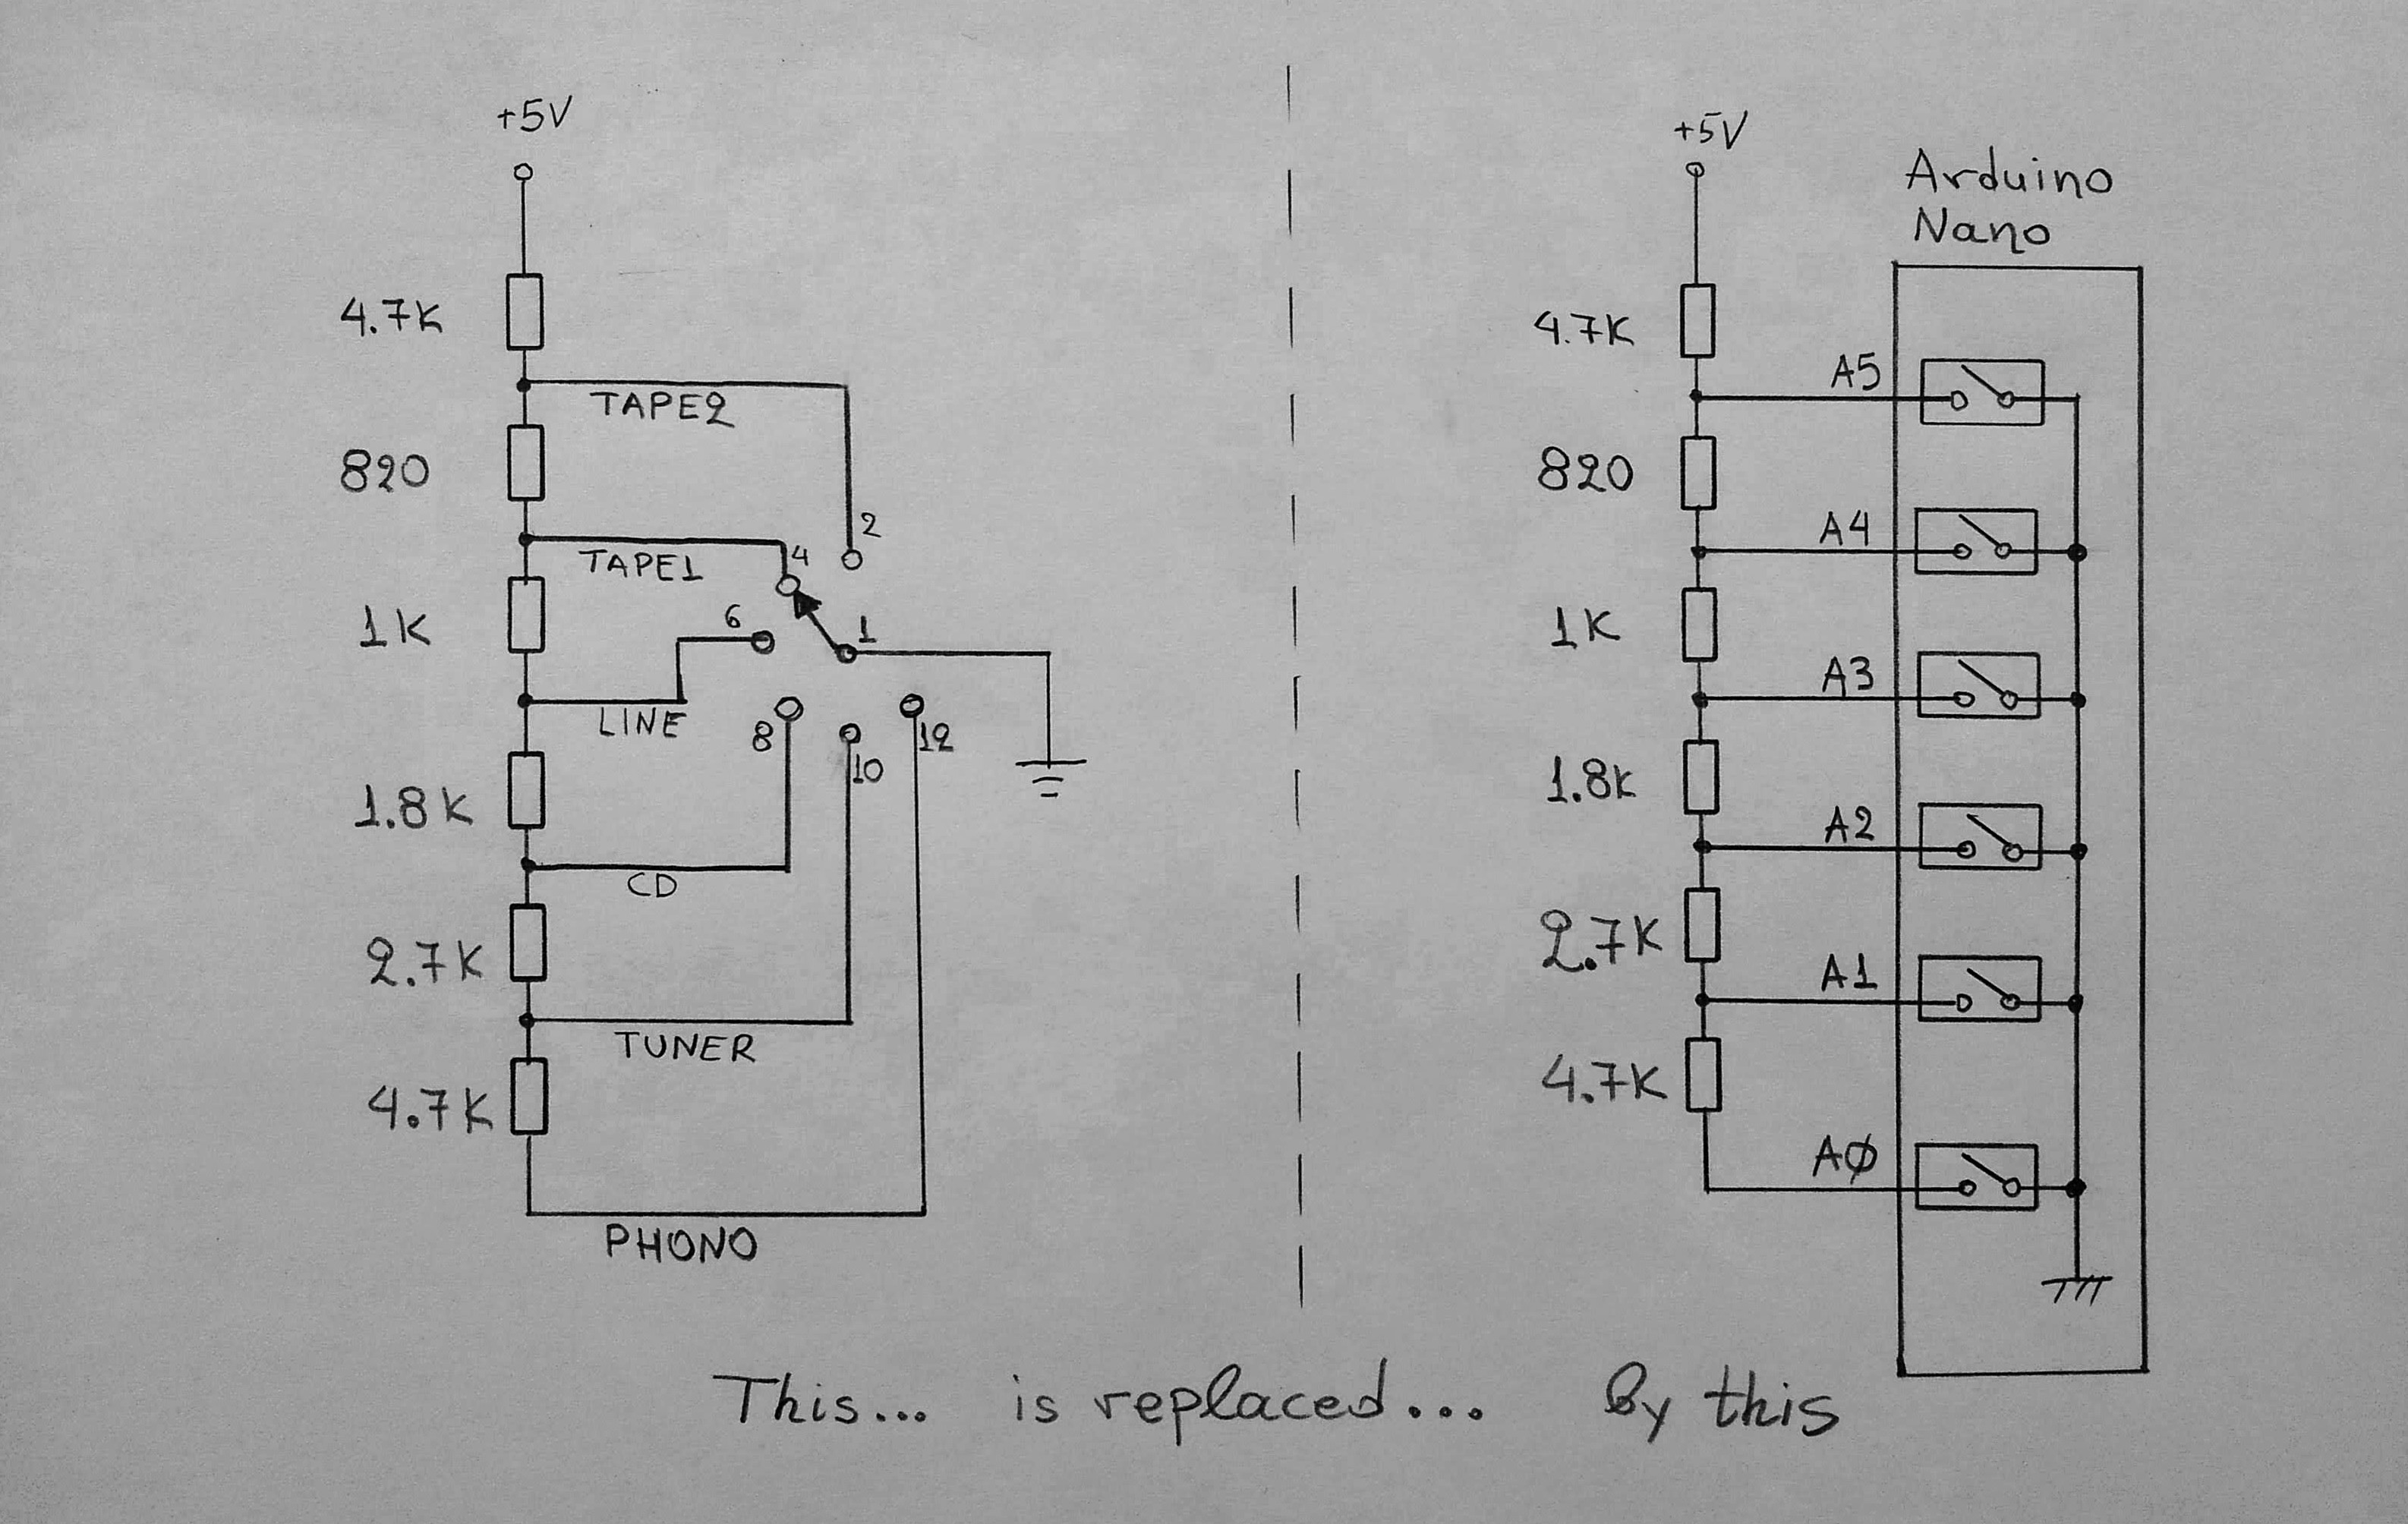 +5V
4.7K
TAPE2
820
2
TAPE1
4
1K
6
1
LINE
8
12
10
1.8K
CD
2.7K
TUNER
4.7K
PHONO
+5V
Arduino
Nano
4.7K
A5
820
A4
1K
A3
1.8K
A2
2.7K
A1
4.7K
AØ
This... is replaced... By this